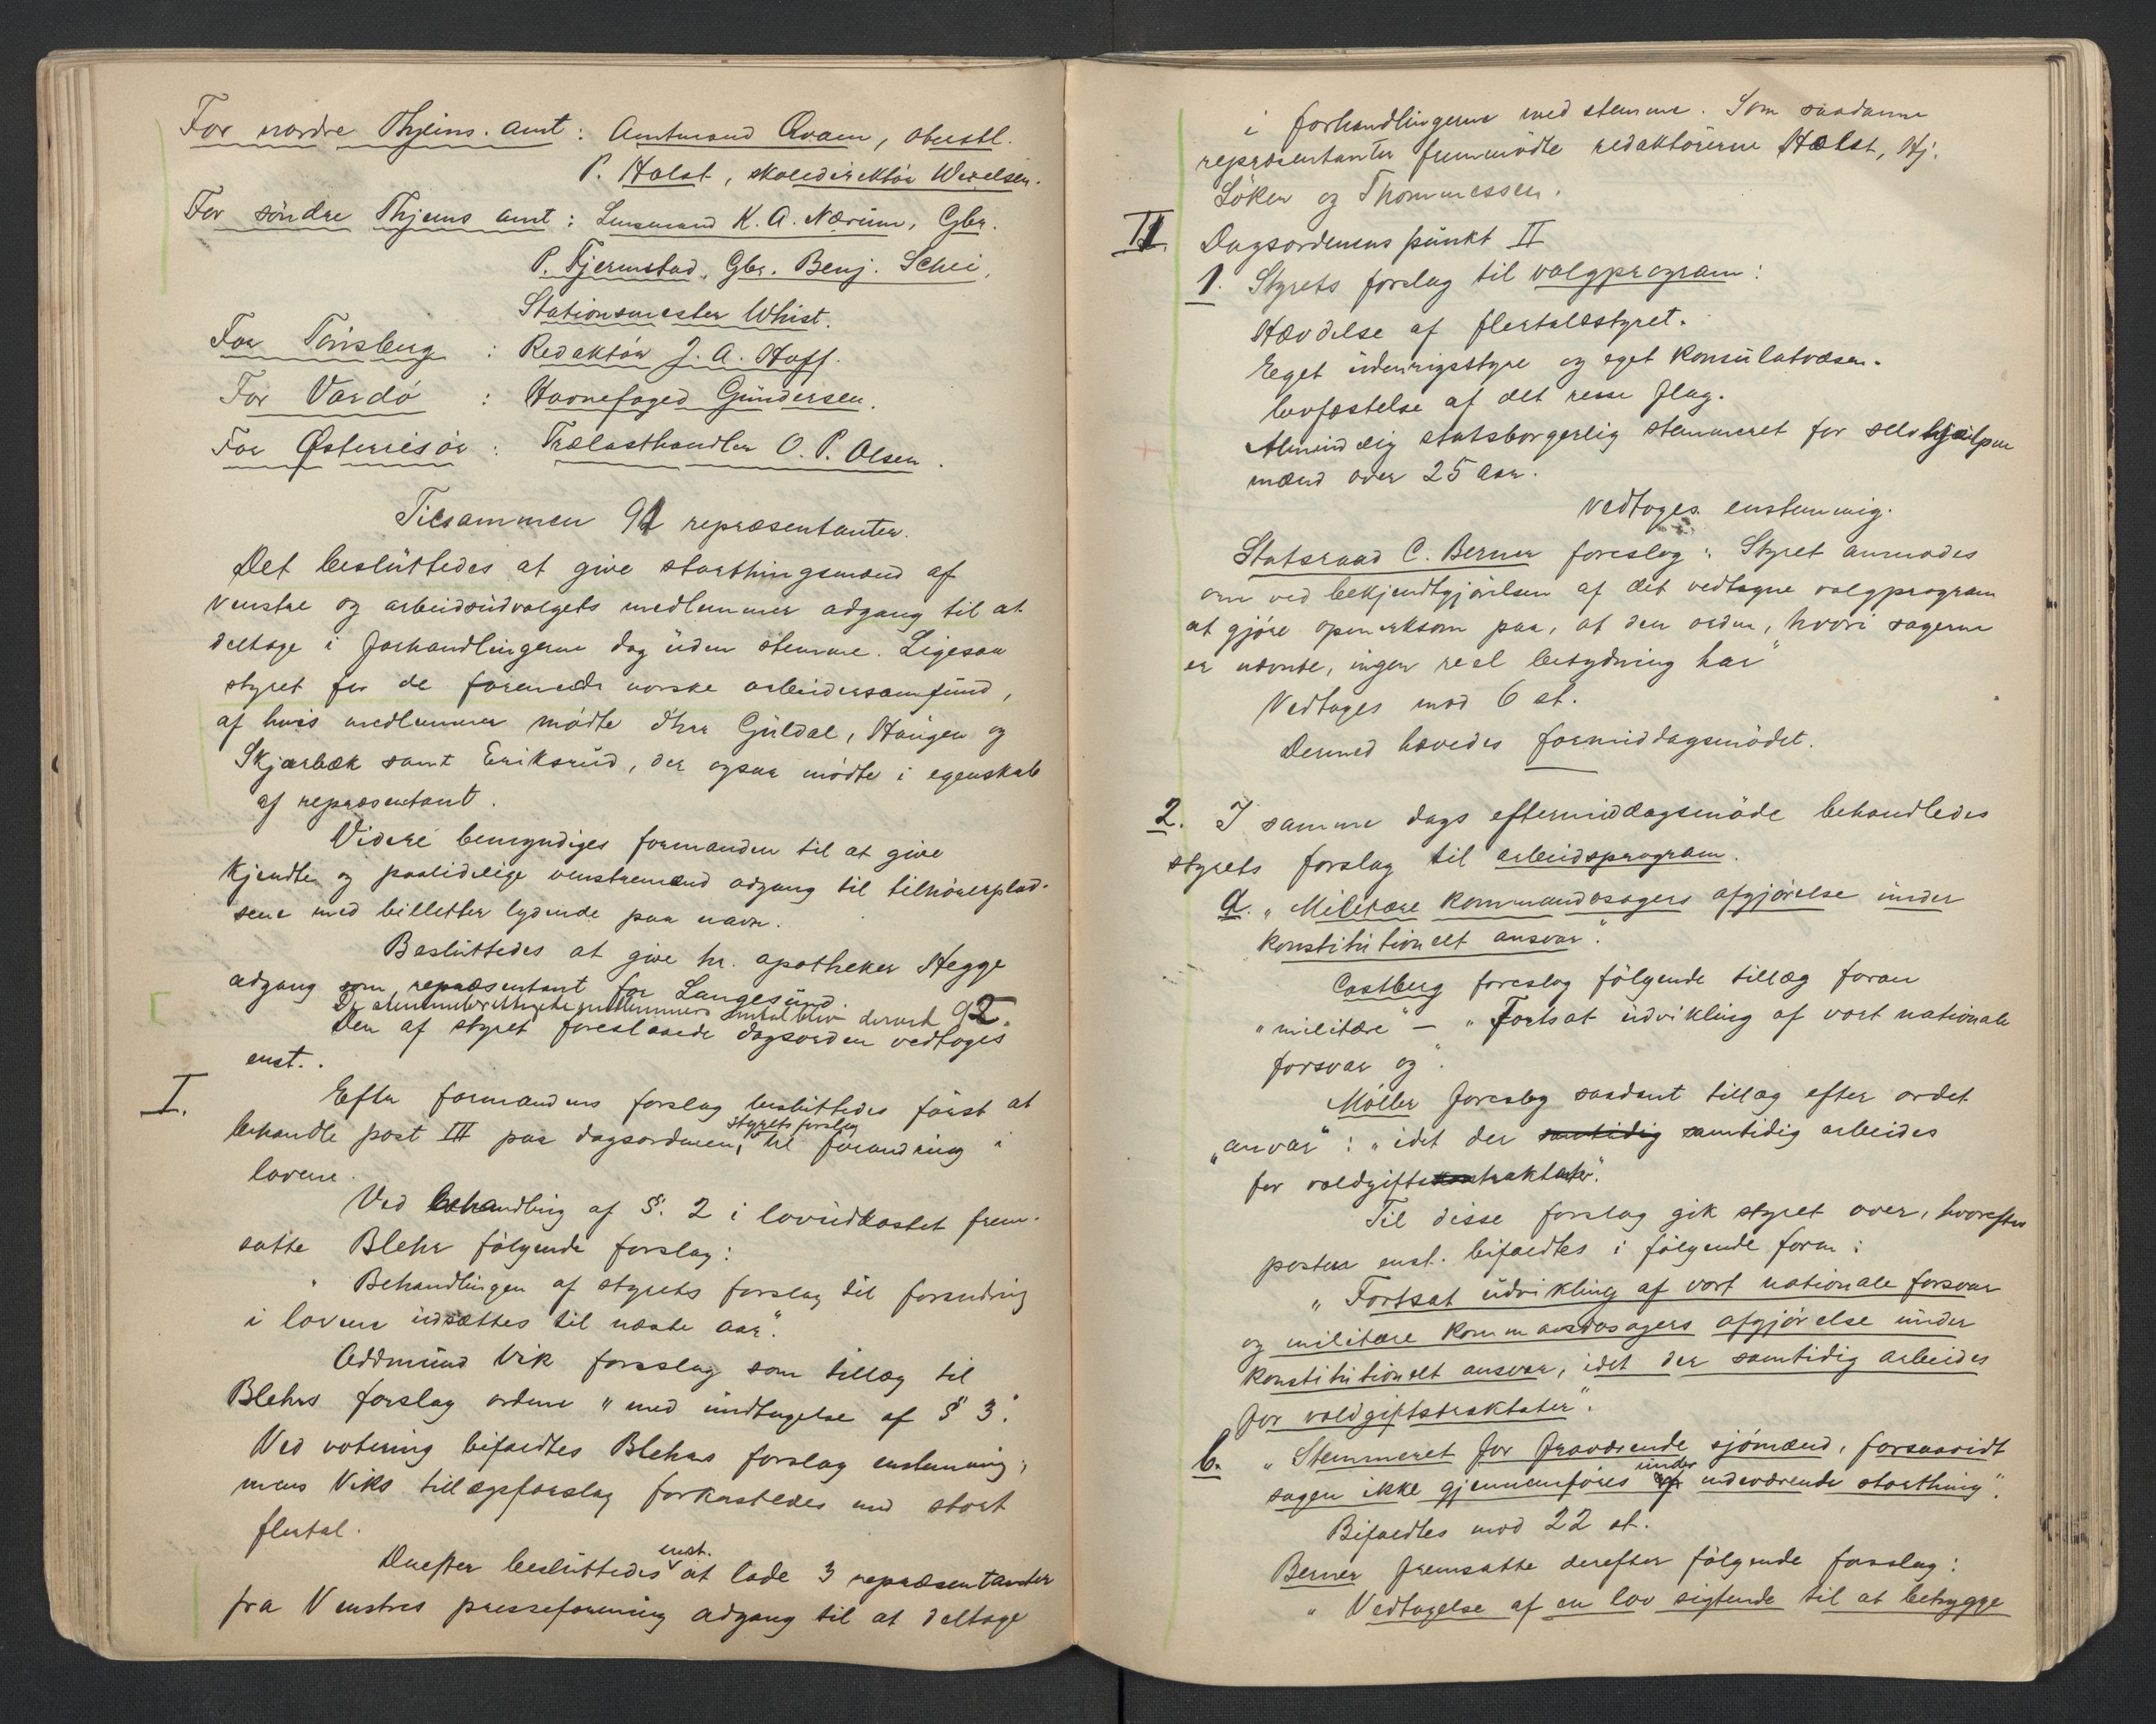 For nordre Thjems. amt : Amtmand Qvam, oberstl.
P. Holst, skoledirektör Wexelsen.
For söndre Thjems amt : Lensmand K. A. Nærum, Gbr.
P. Fjermstad, Gbr. Benj. Schei,
Stationsmester Whist.
For Tönsberg : Redaktör J. A. Hoff.
For Vardö : Havnefoged Gundersen.
For Østerrisör : Trælasthandler O. P. Olsen.
Tilsammen 91 repræsentanter.
Det besluttedes at give storthingsmænd af
venstre og arbeidsudvalgets medlemmer adgang til at
deltage i forhandlingerne dog uden stemme. Ligesaa
styret for de forenede norske arbeidersamfund,
af hvis medlemmer mödte d'hrr Guldal, Haugen og
Skjærbæk samt Eriksrud, der ogsaa mödte i egenskab
af repræsentant.
Videre bemyndiges formanden til at give
kjendte og paalidelige venstremænd adgang til tilhörerplad-
sene med billetter lydende paa navn.
Besluttedes at give hr. apotheker Hegge
adgang som repræsentant for Langesund.
De stemmeberettigede medlemmers antal blev derved 92.
Den af styret foreslaaede dagsorden vedtoges
enst..
I. Efter formandens forslag besluttedes först at
behandle post III paa dagsordenen, styrets forslag til forandring i
lovene.
Ved behandling af §. 2 i lovudkastet frem-
satte Blehr fölgende forslag:
" Behandlingen af styrets forslag til forandring
i lovene udsættes til næste aar".
Oddmund Vik foreslog som tillæg til
Blehrs forslag ordene "med undtagelse af § 3".
Ved votering bifaldtes Blehrs forslag enstemmig,
mens Viks tillægsforslag forkastedes med stort
flertal.
Derefter besluttedes enst. at lade 3 repræsentanter
fra Venstres presseforening adgang til at deltage
i forhandlingerne med stemme. Som saadanne
repræsentanter fremmödte redaktörerne Holst, Hj.
Löken og Thommessen.
II. Dagsordenens punkt II
1. Styrets forslag til valgprogram:
Hævdelse af flertalsstyret.
Eget udenrigsstyre og eget konsulatvæsen.
Lovfæstelse af det rene flag.
Almindelig statsborgerlig stemmeret for selvhjulpne
mænd over 25 aar.
Vedtoges enstemmig.
Statsraad C. Berner foreslog: Styret anmodes
om ved bekjendtgjörelsen af det vedtagne valgprogram
at gjöre opmerksom paa, at den orden, hvori sagerne
er nævnte, ingen reel betydning har"
Vedtoges mod 6 st.
Dermed hævedes formiddagsmödet.
2. I samme dags eftermiddagsmöde behandledes
styrets forslag til arbeidsprogram.
a. "Militære kommandosagers afgjörelse under
konstitutionelt ansvar".
Castberg foreslog fölgende tillæg foran
"militære" – "Fortsat udvikling af vort nationale
forsvar og".
Möller foreslog saadant tillæg efter ordet
"ansvar": "idet der samtidig samtidig arbeides
for voldgiftstraktater".
Til disse forslag gik styret over, hvorefter
posten enst. bifaldtes i fölgende form:
" Fortsat udvikling af vort nationale forsvar
og militære kommandosagers afgjörelse under
konstitutionelt ansvar, idet der samtidig arbeides
for voldgiftstraktater".
b. "Stemmeret for fraværende sjömænd, forsaavidt
sagen ikke gjennemföres under nuværende storthing".
Bifaldtes mod 22 st.
Berner fremsatte derefter fölgende forslag:
" Vedtagelse af en lov sigtende til at betrygge